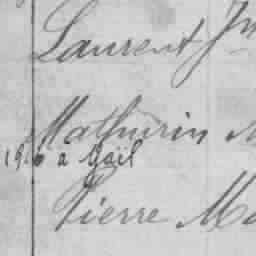 Laurent
Mathurin
à Gaël
Pierre Ma